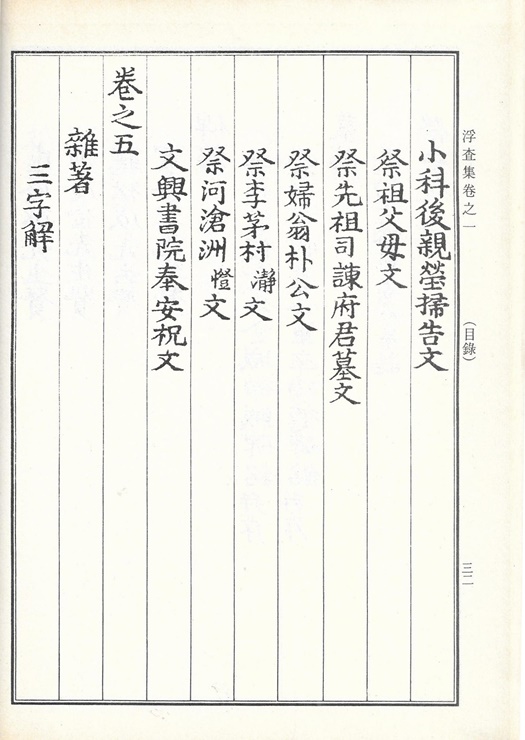 浮査集卷之一
(目錄)
三二
小科後親塋掃告文
祭祖父母文
祭先祖司諫府君墓文
祭婦翁朴公文
祭李茅村瀞文
祭河滄洲憕文
文興書院奉安祝文
卷之五
雜著
三字解